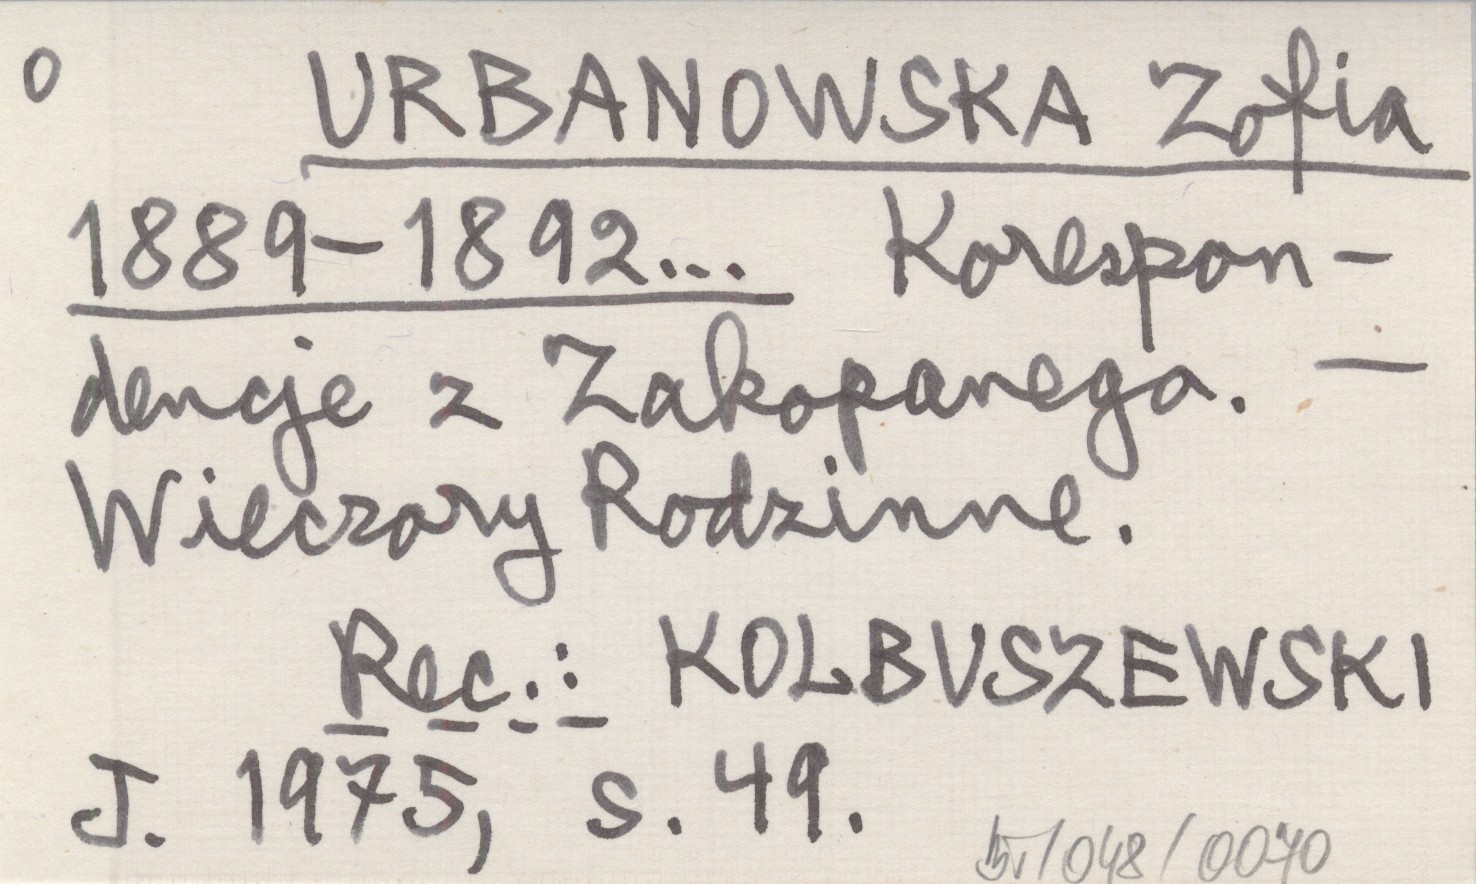 O URBANOWSKA Zofia
1889-1892... Korespon-
dencje z Zakopanego. —
Wieczory Rodzinne.
Rec.: KOLBUSZEWSKI
J. 1975, s. 49.
/048/0070